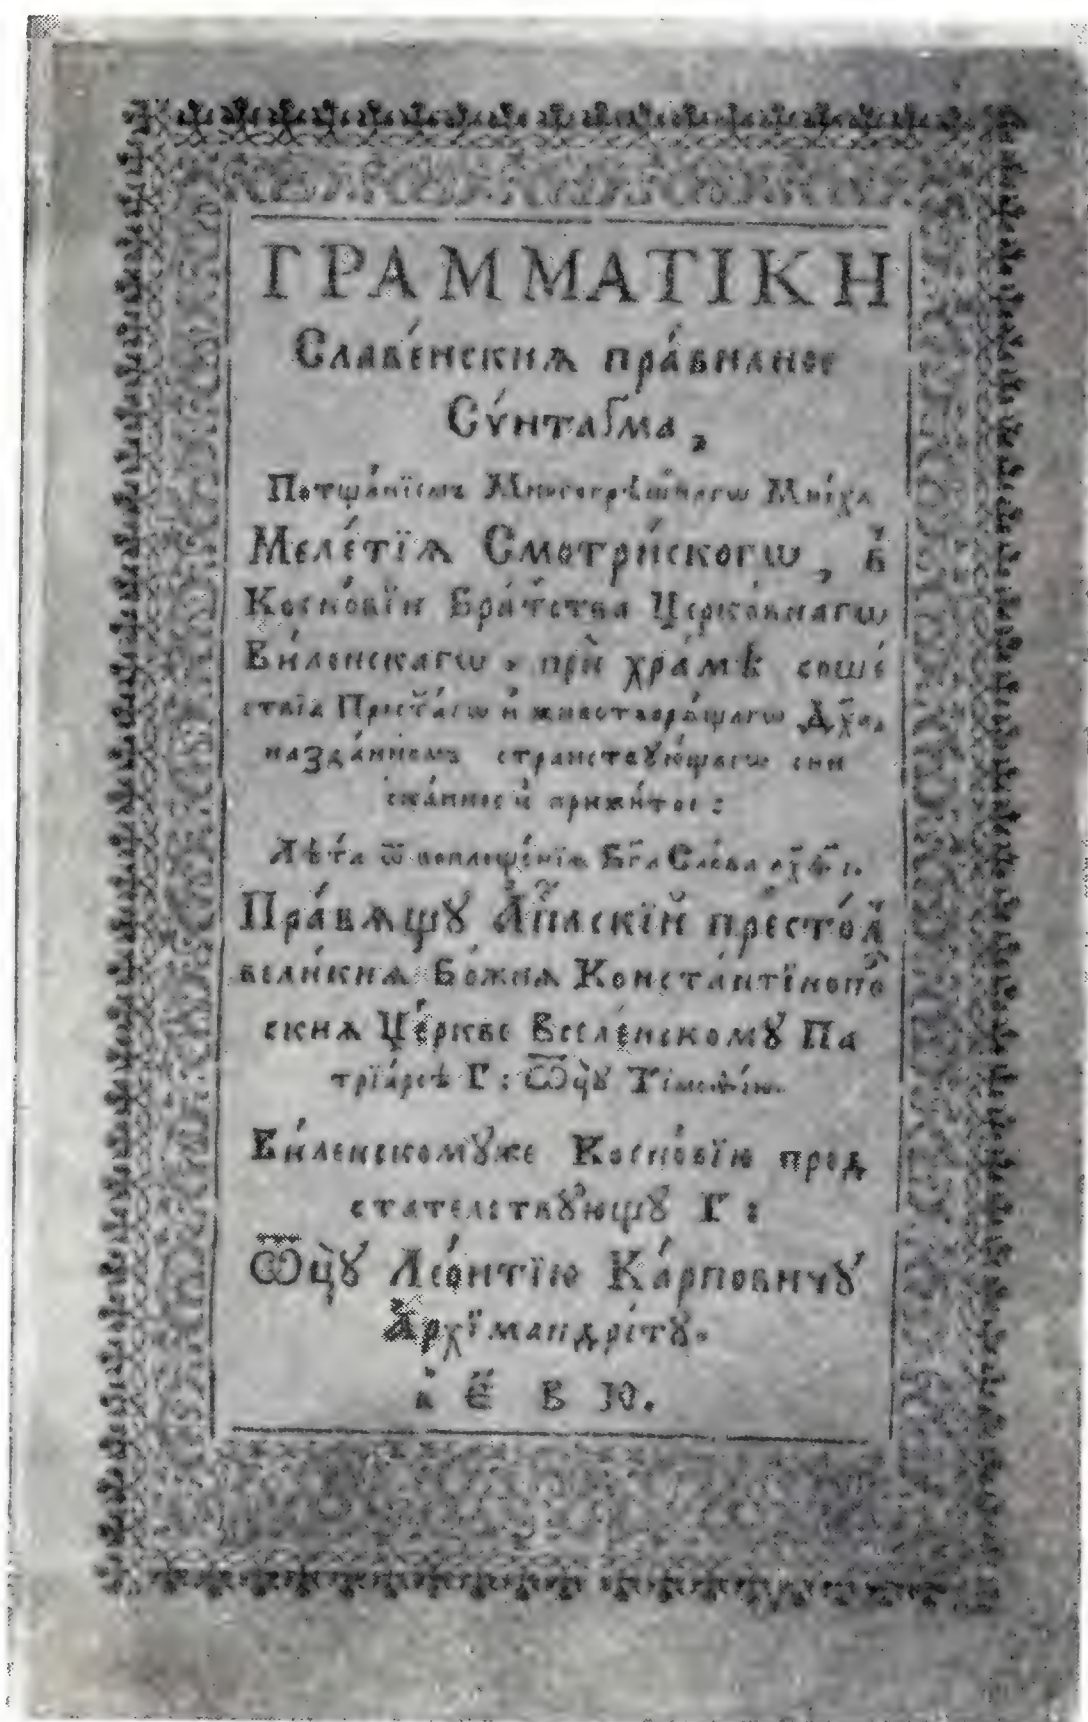 ГРАММАТІКИ
Славе́нскиѧ пра́вилное
Сѵ́нтаґма,
Потща́нїемъ Многогрѣ́шнагѡ Мни́ха
Меле́тїѧ Смотри́скогѡ, в̾
Коено́вїи Бра́тства Церко́внагѡ
Ви́ленскагѡ, прѝ хра́мѣ соше́
ствїѧ Прест҃а́гѡ и҆ животворѧ́щагѡ Дх҃а,
назда́нномъ странствꙋ́ющагѡ сни
ска́нное и҆ прижи́тое:
Лѣ́та ѿ воплоще́нїѧ Бг҃а Сло́ва
Пра́вѧщꙋ А҆пⷭ҇лскїй престо́лъ
вели́киѧ Бо́жїѧ Константїнопо́
скиѧ Це́ркве Вселе́нскомꙋ Па
трїа́рсѣ Г: Ѿцꙋ̀ Тїмоѳе́ю.
Ви́ленскомꙋже Коено́вїю пред
стателствꙋ́ющꙋ Г:
Ѿцꙋ̀ Лео́нтїю Ка́рповичꙋ
А҆рхїмандрі́тꙋ.
в̾ Е҆ В Ю.